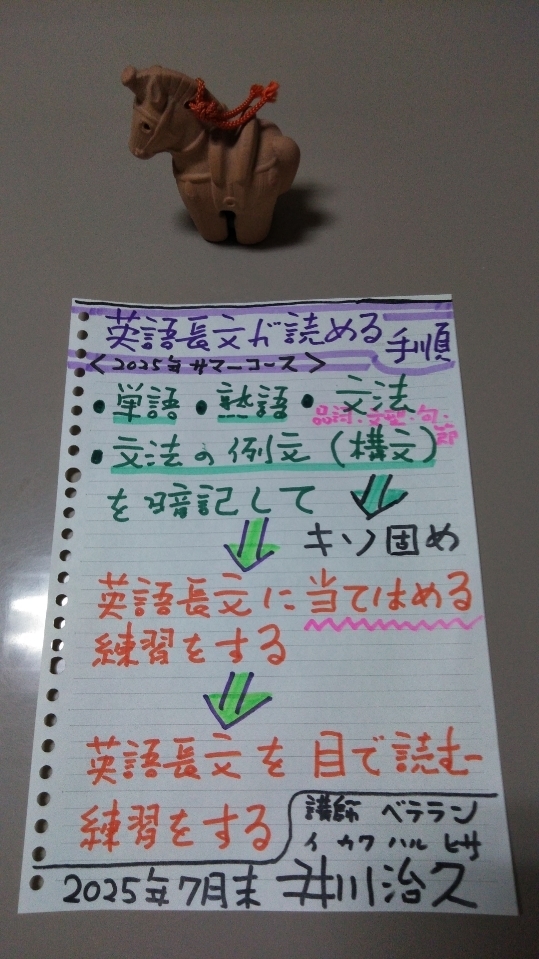 英語長文が読める手順
<2025年サマーコース>
・単語・熟語・文法
品詞・文型・句・節
・文法の例文(構文)
を暗記して
キソ固め
英語長文に当てはめる
練習をする
英語長文を目で読む
練習をする
講師 ベテラン
イカワハルヒサ
2025年7月末 井川治久